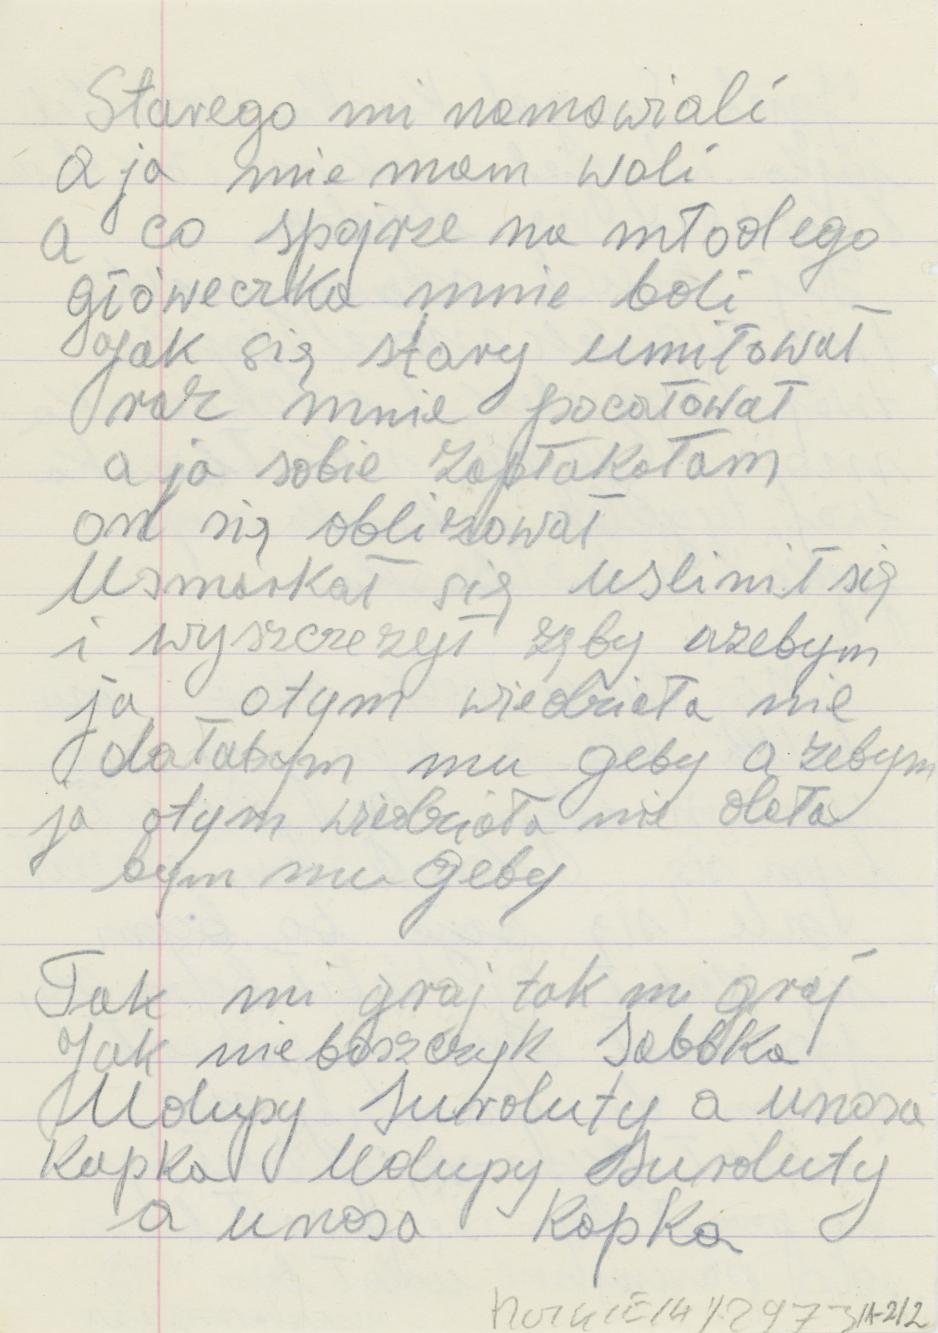 Starego mi namawiali
a ja nie mam woli
a co spojrze na młodego
główeczka mnie boli
Jak się stary umiłował
raz mnie pocałował
a ja sobie zapłakałam
on się oblizował
Usmarkał się uslinił się
i wyszczerzył zęby azebym
ja otym wiedziała nie
dałabym mu geby a zebym
ja otym wiedziała nie dała
bym mu geby
Tak mi graj tak mi graj
Jak nieboszczyk Sobbka
Udupy Surduty a unosa
Kapka Udupy Surduty
a unosa Kapka